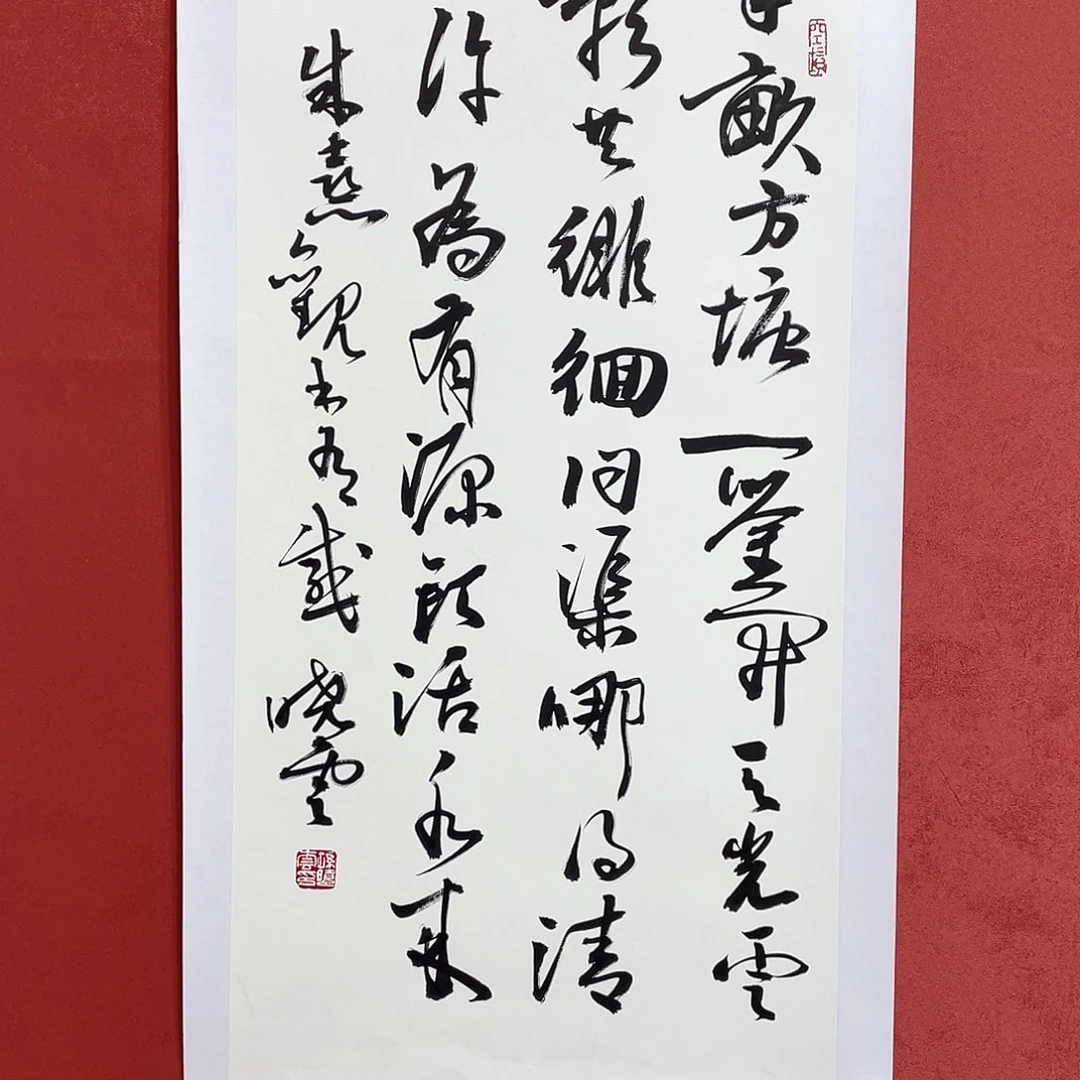 半畝方塘一鑒開天光雲
影共徘徊問渠哪得清
許為有源頭活水來
朱熹觀書有感 曉雲
孫曉雲印